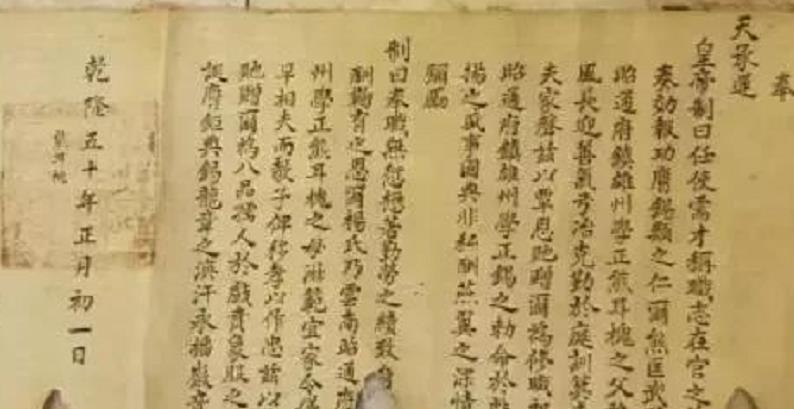 奉
天承運
皇帝制曰任使需才稱職志在官之
奏効報功膺錫類之仁爾熊匡武
昭通府鎮雄州學正熊耳槐之父
風長迎善氣弓冶克勤於庭訓箕
夫家聲茲以覃恩貤贈爾為修職
昭通府鎮雄州學正錫之勅命於戲
揚之風事國典非輕酬燕翼之深情
彌勵
制曰奉職無愆懋著勤勞之績致
酬鞠育之恩爾楊氏乃雲南昭通府
州學正熊耳槐之母淑範宜家令儀
早相夫而教子俾移孝以作忠茲以
貤贈爾為八品孺人於戲賁象服之
諟膺鉅典錫龍章之渙汗永播徽音
乾隆五十年正月初一日